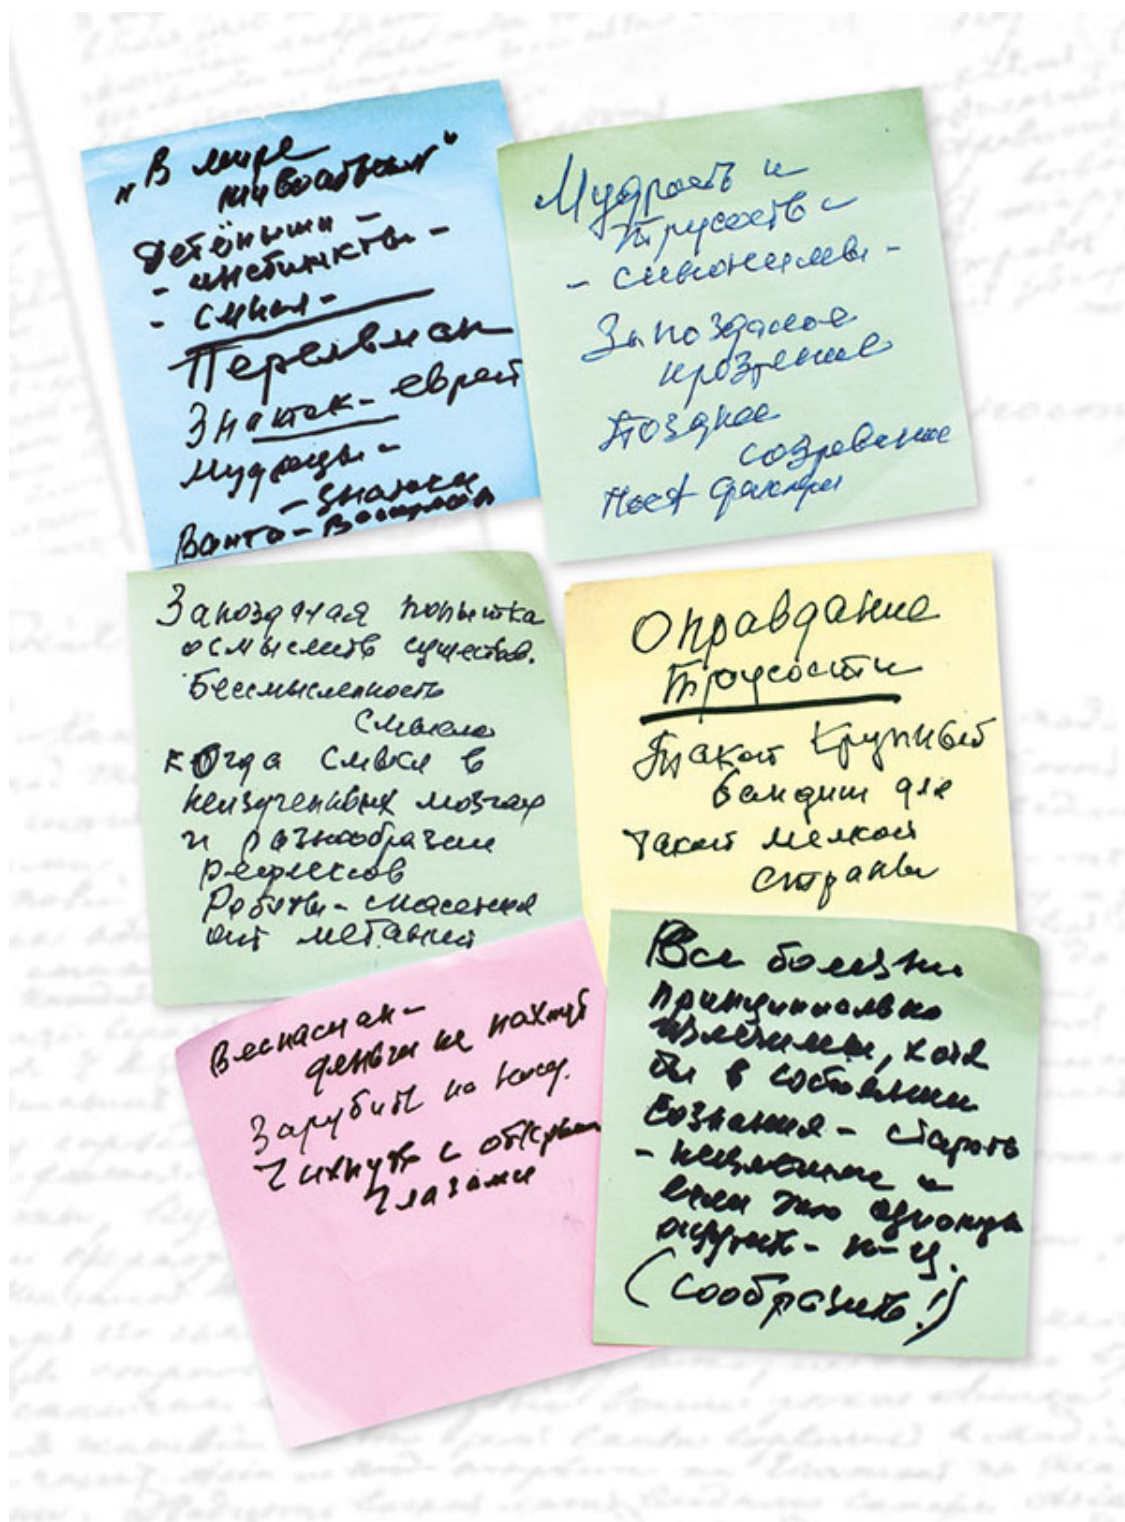 „В мире
животных"
Детёныши -
- инстинкты -
- смысл -
Перельман
Знаток - еврей
Мудрецы -
- знатоки
Ванга -
Мудрость и
трусость -
- синонимы -
Запоздалое
прозрение
Позднее
созревание
Пост фактум
Запоздалая попытка
осмыслить существов.
Бессмысленность
смысла
когда смысл в
неизученных мозгах
и разнообразии
рефлексов
Роботы - спасение
от метаний
Оправдание
трусости
Такой крупный
бандит для
такой мелкой
страны
Веспасиан -
деньги не пахнут
Зарубить на носу.
Чихнуть с открыт
глазами
Все болезни
принципиально
излечимы, хотя
бы в состоянии
сознания - старость
- неизлечима и
если это однажды
ощутить - п-ц.
(сообразить!)